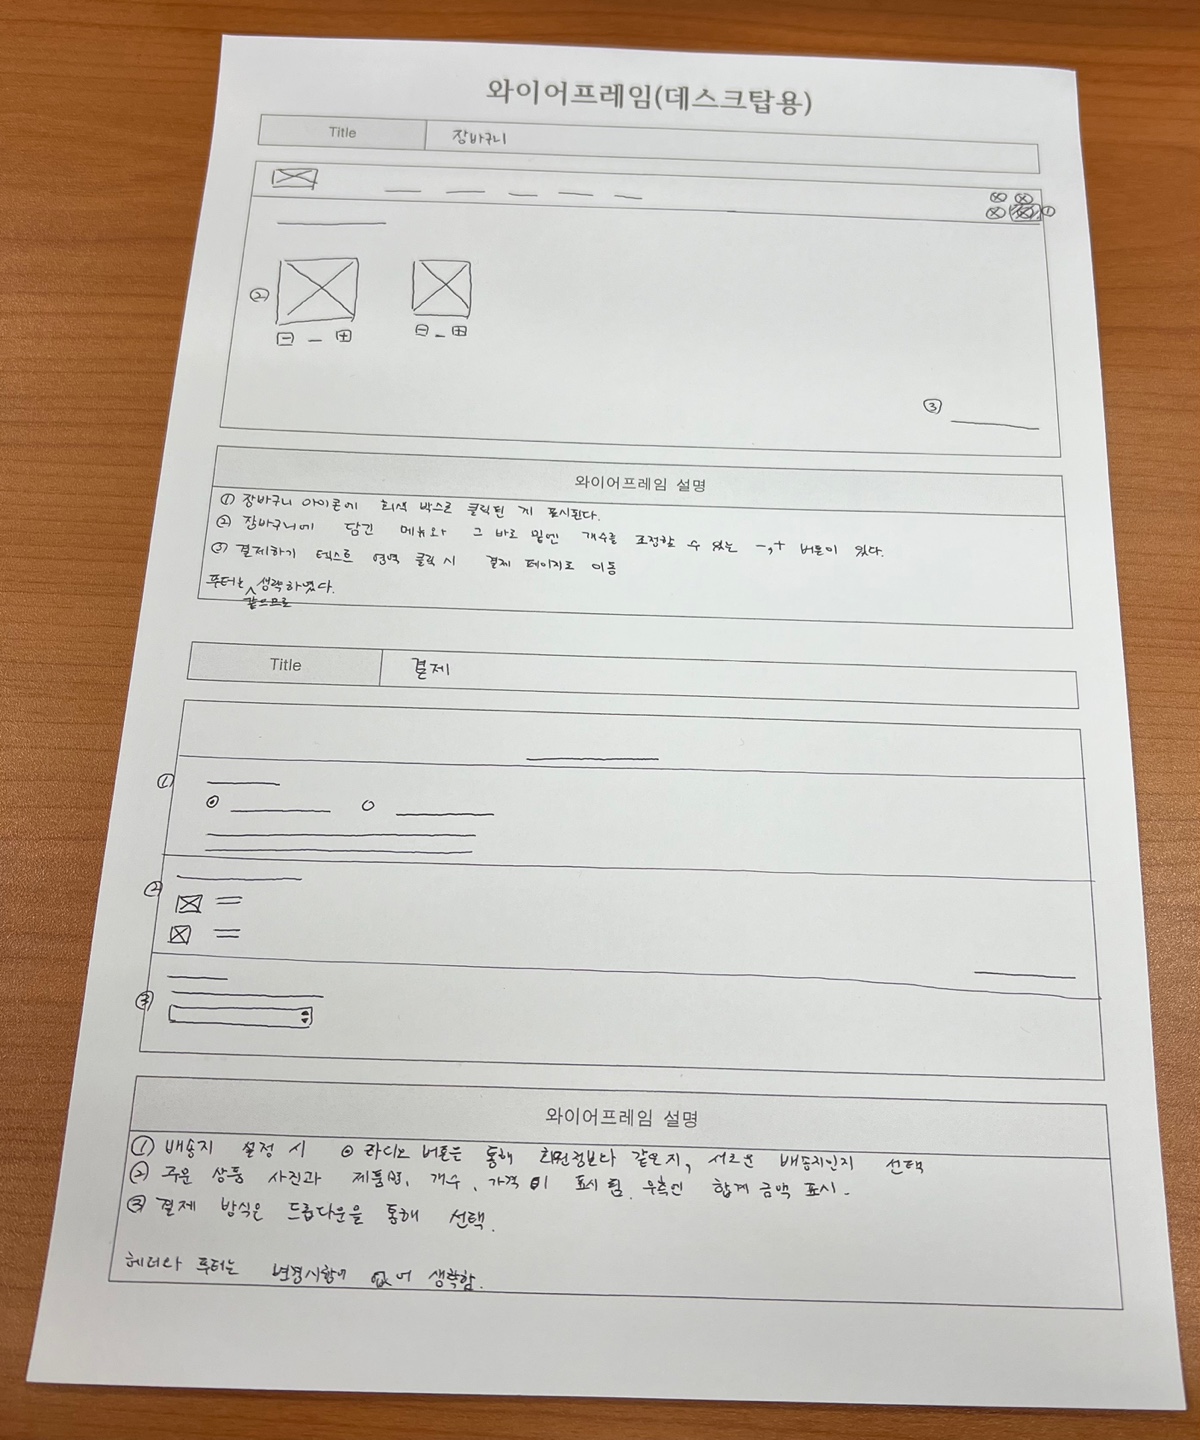 와이어프레임(데스크탑용)
Title 장바구니
①
②
③
와이어프레임 설명
① 장바구니 아이콘에 회색 박스로 클릭된 지 표시된다.
② 장바구니에 담긴 메뉴와 그 바로 밑엔 개수를 조정할 수 있는 -,+ 버튼이 있다.
③ 결제하기 텍스트 영역 클릭 시 결제 페이지로 이동
푸터는 생략하였다.
같으므로
Title 결제
①
②
③
와이어프레임 설명
① 배송지 설정 시 ⊙ 라디오 버튼을 통해 회원정보다 같은지, 서로운 배송지인지 선택
② 주문 상품 사진과 제품명, 개수, 가격이 표시 됨. 우측엔 합계 금액 표시.
③ 결제 방식은 드롭다운을 통해 선택.
헤더와 푸터는 변경사항이 없어 생략함.